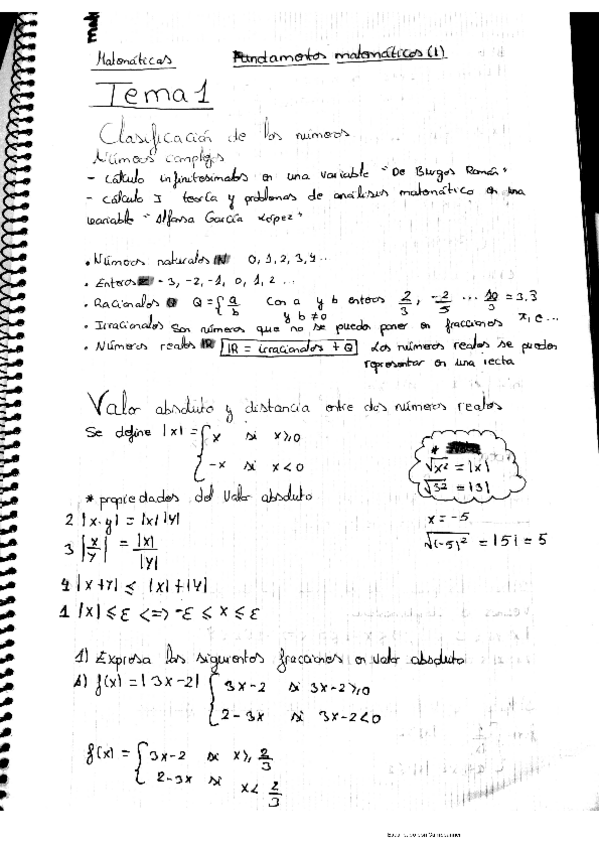 Matemáticas Fundamentos matemáticos (1)
Tema 1
Clasificación de los números
Números complejos
- Cálculo infinitesimales en una variable "De Burgos Román"
- Cálculo I teoría y problemas de análisis matemático en una
variable "Alfonsa García López"
• Números naturales N 0, 1, 2, 3, 4..
• Enteros Z - 3, -2, -1, 0, 1, 2 ...
• Racionales Q Q = { a/b con a y b enteros 2/3, -2/5 ... 10/3 = 3.3
y b ≠ 0
• Irracionales Son números que no se pueden poner en fracciones π, e ...
• Números reales IR IR = irracionales + Q Los números reales se pueden
representar en una recta
Valor absoluto y distancia entre dos números reales
Se define |x| = { x si x ≥ 0
-x si x < 0
*
√x² = |x|
√3² = |3|
x = -5
√(-5)² = |5| = 5
* propiedades del valor absoluto
2 |x·y| = |x| |y|
3 |x/y| = |x|/|y|
4 |x+y| ≤ |x| + |y|
1 |x| ≤ ε <=> -ε ≤ x ≤ ε
1) Expresa las siguientes fracciones en valor absoluto
f(x) = |3x-2| { 3x-2 si 3x-2 ≥ 0
2-3x si 3x-2 < 0
f(x) = { 3x-2 si x ≥ 2/3
2-3x si x < 2/3